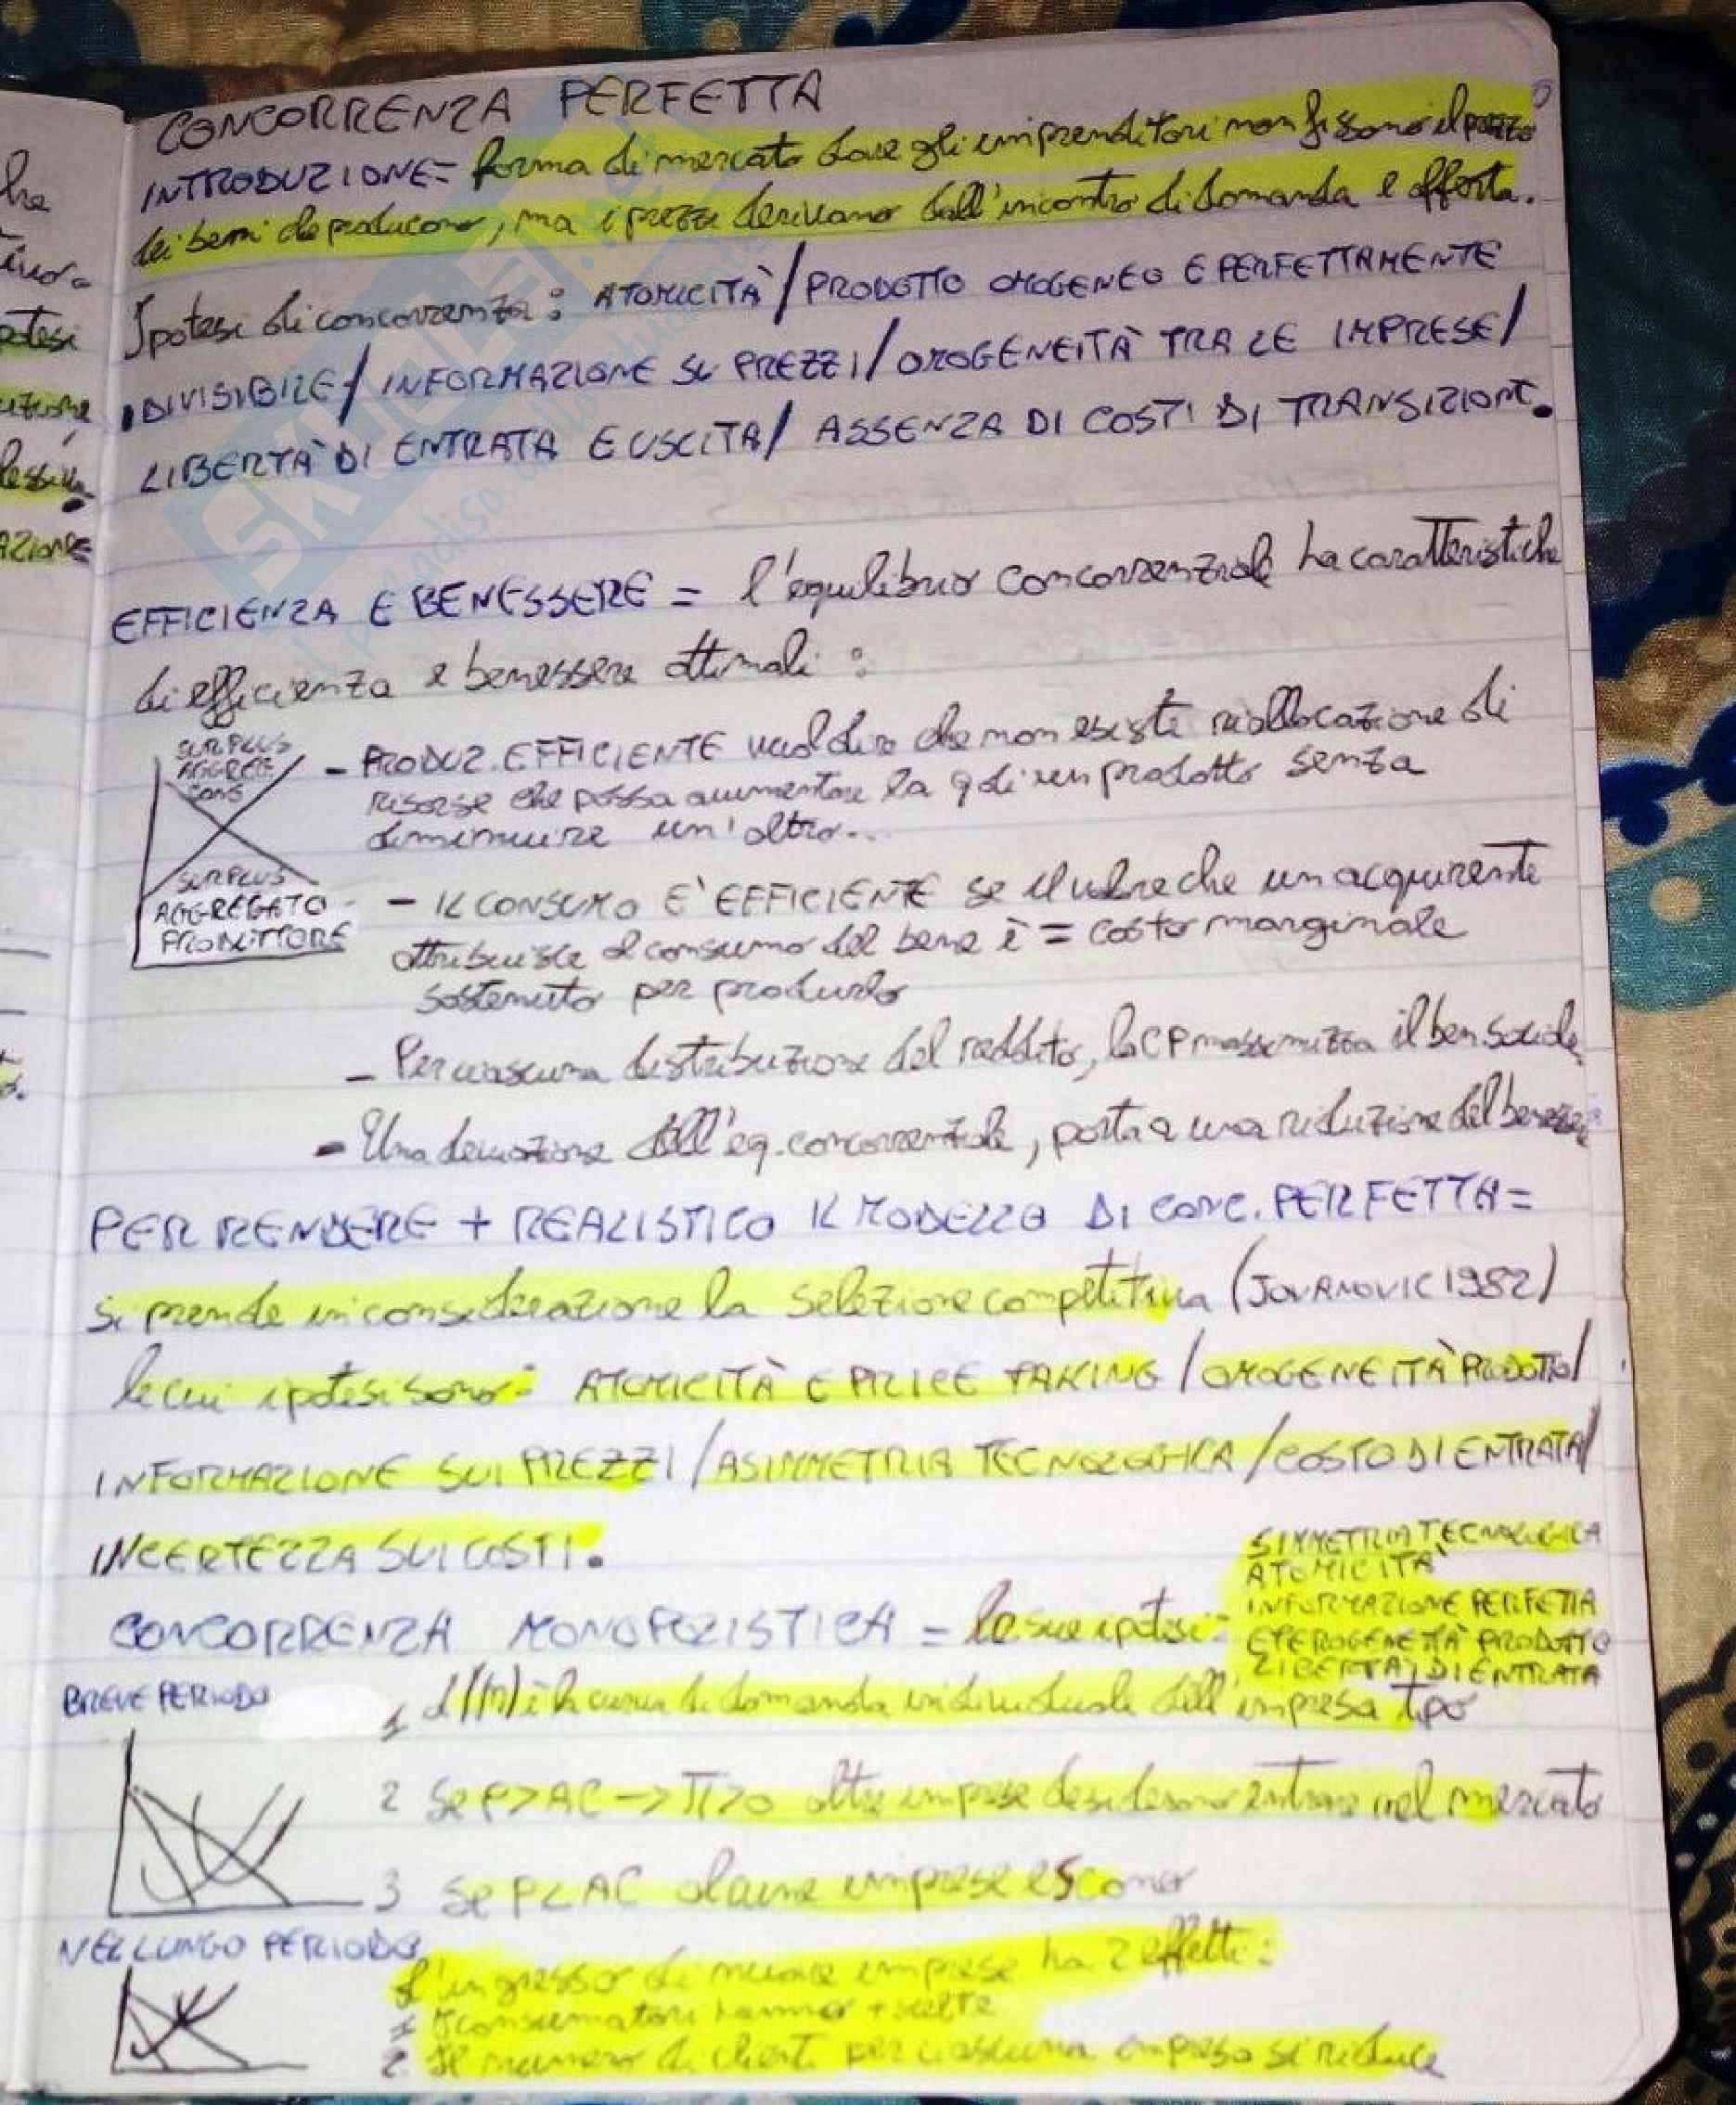 CONCORRENZA PERFETTA
INTRODUZIONE= forma di mercato dove gli imprenditori non fissano il prezzo
dei beni che producono, ma i prezzi derivano dall'incontro di domanda e offerta.
Ipotesi di concorrenza: ATOMICITÀ/PRODOTTO OMOGENEO E PERFETTAMENTE
DIVISIBILE/ INFORMAZIONE SU PREZZI/OMOGENEITÀ TRA LE IMPRESE/
LIBERTÀ DI ENTRATA E USCITA/ ASSENZA DI COSTI DI TRANSIZIONE.
EFFICIENZA E BENESSERE = l'equilibrio concorrenziale ha caratteristiche
di efficienza e benessere ottimali:
SURPLUS
AGGREG
CONS
- PRODUZ. EFFICIENTE vuol dire che non esiste riallocazione di
risorse che possa aumentare la q di un prodotto senza
diminuire un'altro...
SURPLUS
AGGREGATO
PRODUTTORE
- IL CONSUMO E' EFFICIENTE se il valore che un acquirente
attribuisce al consumo del bene è = costo marginale
sostenuto per produrlo
- Per ciascuna distribuzione del reddito, la CP massimizza il ben. sociale
- Una deviazione dall'eq. concorrenziale, porta a una riduzione del benessere
PER RENDERE + REALISTICO IL MODELLO DI CONC. PERFETTA=
si prende in considerazione la selezione competitiva (JOVANOVIC 1982)
le cui ipotesi sono: ATOMICITÀ E PRICE TAKING/OMOGENEITÀ PRODOTTO/
INFORMAZIONE SUI PREZZI/ASIMMETRIA TECNOLOGICA/COSTO DI ENTRATA/
INCERTEZZA SUI COSTI.
SIMMETRIA TECNOLOGICA
ATOMICITÀ
INFORMAZIONE PERFETTA
CONCORRENZA MONOPOLISTICA = le sue ipotesi:
ETEROGENEITÀ PRODOTTO
LIBERTÀ DI ENTRATA
BREVE PERIODO
1 d(m) è la curva di domanda individuale dell'impresa tipo
2 Se P>AC->π>0 altre imprese desiderano entrare nel mercato
3 Se P<AC alcune imprese escono
NEL LUNGO PERIODO
L'ingresso di nuove imprese ha 2 effetti:
1 I consumatori hanno + scelte
2. Il numero di clienti per ciascuna impresa si riduce
SKUOLA
il paradiso dello studente
potesi